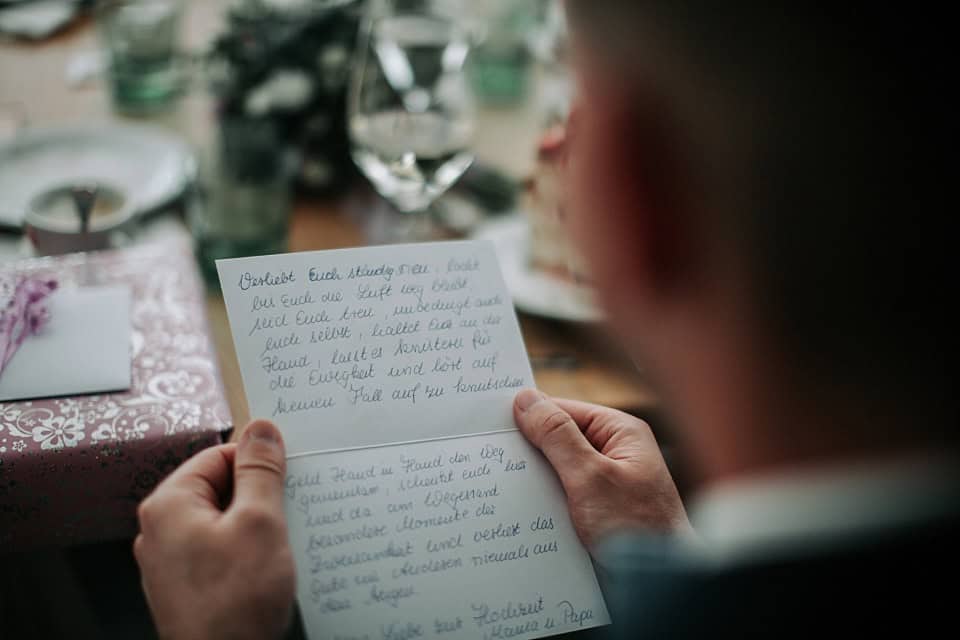 Verliebt Euch ständig neu, lacht
bis Euch die Luft weg bleibt,
seid Euch treu, unbedingt auch
euch selbst, haltet Euch an der
Hand, lasst es knistern für
die Ewigkeit und hört auf
keinen Fall auf zu knutschen
Geht Hand in Hand den Weg
gemeinsam, schenkt euch hier
und da am Wegesrand
besondere Momente der
Zweisamkeit und verliert das
Gute im Anderen niemals aus
den Augen.
Liebe zur Hochzeit
Mama u. Papa